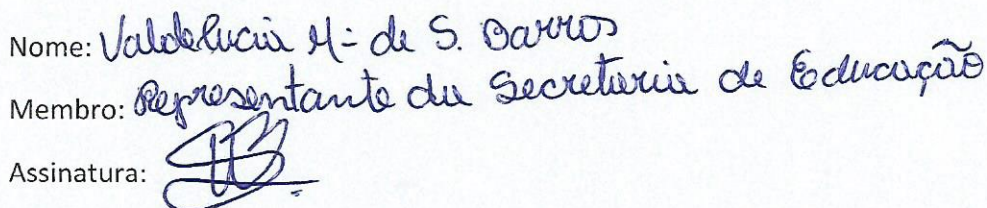 Nome: Valdelucia Mª de S. Barros
Membro: Representante da Secretaria de Educação
Assinatura: